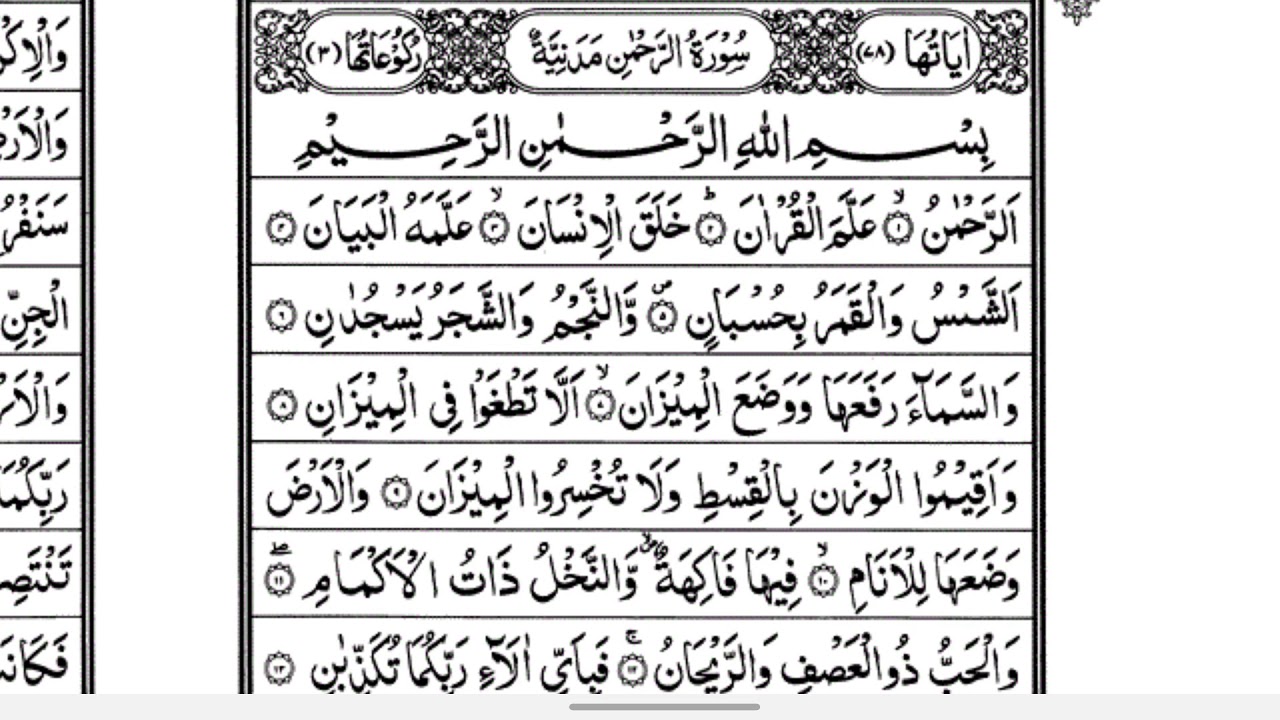 اٰيَاتُهَا (٧٨) سُوْرَةُ الرَّحْمٰنِ مَدَنِيَّةٌ رُكُوْعَاتُهَا (٣)
بِسْمِ اللّٰهِ الرَّحْمٰنِ الرَّحِيْمِ
اَلرَّحْمٰنُ ۙ﴿١﴾ عَلَّمَ الْقُرْاٰنَ ؕ﴿٢﴾ خَلَقَ الْاِنْسَانَ ۙ﴿٣﴾ عَلَّمَهُ الْبَيَانَ ﴿٤﴾
اَلشَّمْسُ وَالْقَمَرُ بِحُسْبَانٍ ۪﴿٥﴾ وَّالنَّجْمُ وَالشَّجَرُ يَسْجُدٰنِ ﴿٦﴾
وَالسَّمَآءَ رَفَعَهَا وَوَضَعَ الْمِيْزَانَ ۙ﴿٧﴾ اَلَّا تَطْغَوْا فِى الْمِيْزَانِ ﴿٨﴾
وَاَقِيْمُوا الْوَزْنَ بِالْقِسْطِ وَلَا تُخْسِرُوا الْمِيْزَانَ ﴿٩﴾ وَالْاَرْضَ
وَضَعَهَا لِلْاَنَامِ ۙ﴿١٠﴾ فِيْهَا فَاكِهَةٌ ۪ۙ وَّالنَّخْلُ ذَاتُ الْاَكْمَامِ ۖ﴿١١﴾
وَالْحَبُّ ذُو الْعَصْفِ وَالرَّيْحَانُ ۚ﴿١٢﴾ فَبِاَىِّ اٰلَآءِ رَبِّكُمَا تُكَذِّبٰنِ ﴿١٣﴾
سَنَفْرُ
الْجِنِّ
رَبِّكُمَا